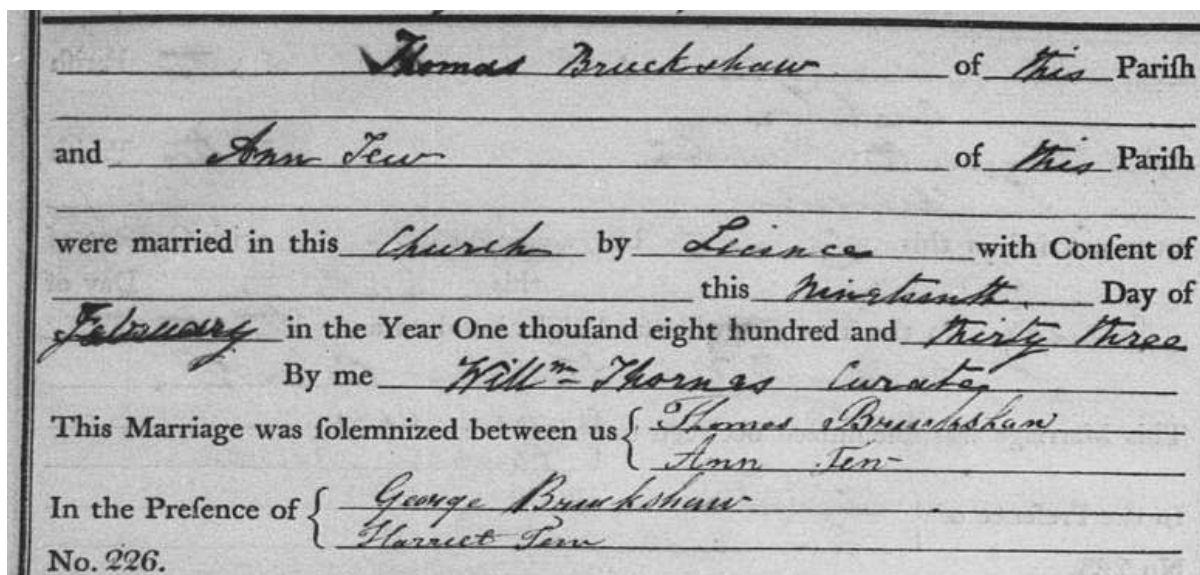 Thomas Bruckshaw of this Pariſh
and Ann Tew of this Pariſh
were married in this Church by Licence with Conſent of
this nineteenth Day of
February in the Year One thouſand eight hundred and thirty three
By me Willm Thomas Curate
This Marriage was ſolemnized between us { Thomas Bruckshaw
Ann Tew
In the Preſence of { George Bruckshaw
Harriet Tew
No. 226.